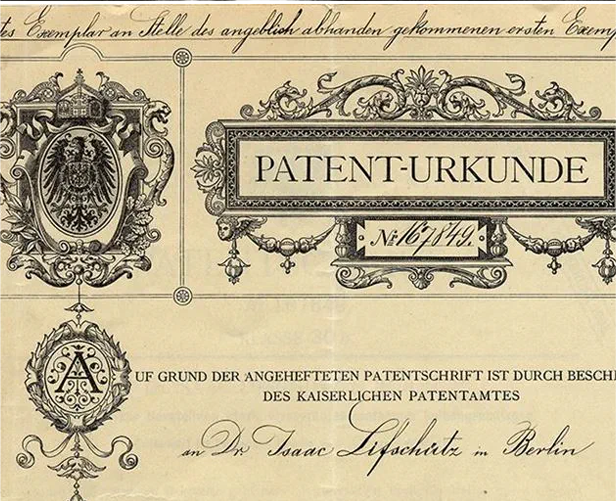 tes Exemplar an Stelle des angeblich abhanden gekommenen ersten Exemp
PATENT-URKUNDE
№ 167849.
AUF GRUND DER ANGEHEFTETEN PATENTSCHRIFT IST DURCH BESCH
DES KAISERLICHEN PATENTAMTES
an Dr. Isaac Lifschütz in Berlin